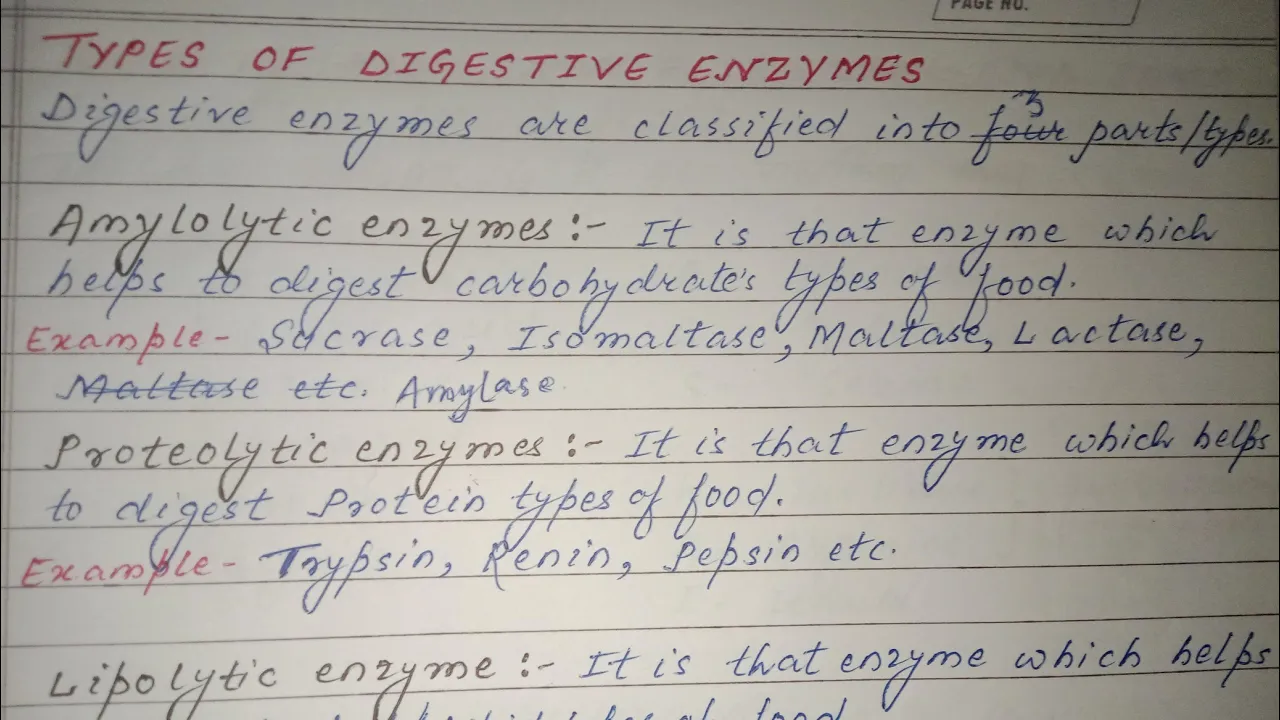 PAGE NO.
TYPES OF DIGESTIVE ENZYMES
3
Digestive enzymes are classified into four parts/types.
Amylolytic enzymes :- It is that enzyme which
helps to digest carbohydrate's types of food.
Example - Sucrase, Isomaltase, Maltase, Lactase,
Maltase etc. Amylase
Proteolytic enzymes :- It is that enzyme which helps
to digest Protein types of food.
Example - Trypsin, Renin, Pepsin etc.
Lipolytic enzyme :- It is that enzyme which helps
of food